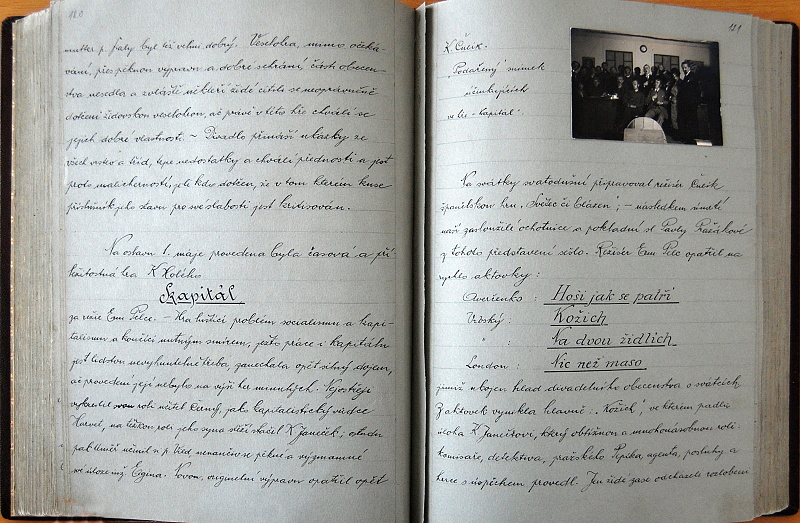 180
mutter p. Šaty byl též velmi dobrý. Veselohra, mimo očeká-
vání, přes pěknou výpravu a dobré sehrání, části obecen-
stva nesedla a zvláště někteří židé cítili se neoprávněně
dotčeni židovskou veselohrou, ač právě v této hře chválí se
jejich dobré vlastnosti. – Divadlo přináší ukázky ze
všech vrstev a tříd, tepe nedostatky a chválí přednosti a jest
proto malicherností, je-li kdo dotčen, že v tom kterém kuse
příslušník jeho stavu pro své slabosti jest kritisován.
Na oslavu 1. máje provedena byla časová a pří-
ležitostná hra K. Holého
Kapitál
za režie Em. Pelce. – Hra luštící problém socialismu a kapi-
talismu a končící nutným smírem, ježto práce i kapitálu
jest lidstvu nevyhnutelně třeba, zanechala opět silný dojem,
ač provedení její nebylo na výši her minulých. Nejostřeji
vykreslil svou roli učitel Černý, jako kapitalistický vůdce
Harvel, na těžkou roli jeho syna stěží stačil K. Janeček;
pak
ve úloze inž. Egona. Novou, originelní výpravu opatřil opět
181
K. Cucík.
"Podařený" snímek
účinkujících
ve hře "Kapitál".
Na svátky svatodušní připravoval režisér Cucík
španělskou hru "Světec či blázen"; – následkem úmrtí
naší zasloužilé ochotnice a pokladní sl. Pavly Pražákové
z tohoto představení sešlo. Režisér Em. Pelc opatřil na
rychlo aktovky:
Averčenko: Hoši jak se patří
Vrbský: Kožich
" : Na dvou židlích
London: Nic než maso
jimiž ukojen hlad divadelního obecenstva o svátcích.
Z aktovek vynikla hlavně: "Kožich", ve kterém padla
úloha K. Janečkovi, který obtížnou a mnohonásobnou roli
komisaře, detektiva, pražského Pepíka, agenta, posluhy a
herce s úspěchem provedl. Jen židé zase odcházeli rozzlobeni